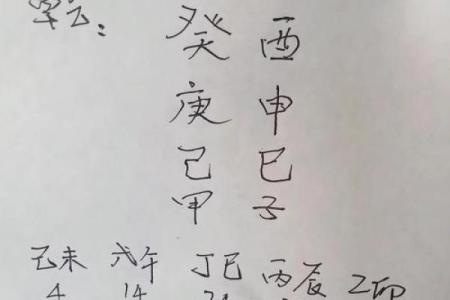 癸 酉
庚 申
己 巳
甲 子
己未 戊午 丁巳 丙辰 乙卯
4 14 24